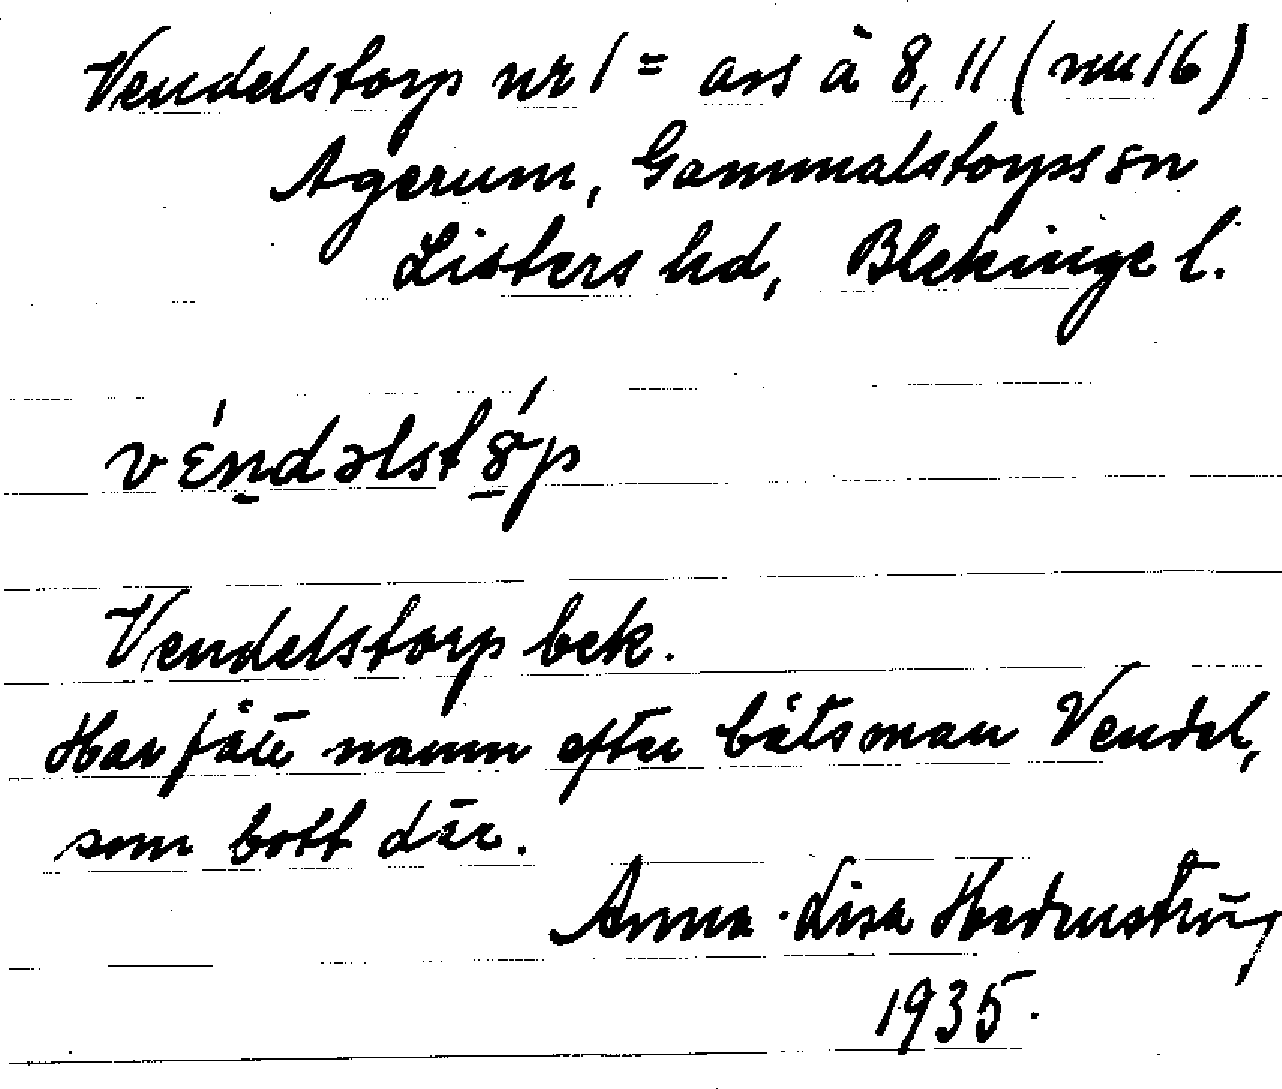 Vendelstorp nr 1 = avs å 8, 11 (nu 16)
Agerum, Gammalstorps sn
Listers hd, Blekinge l.
véndəlstóp
Vendelstorp bek.
Har fått namn efter båtsman Vendel,
som bott där.
Anna-Lisa
1935.